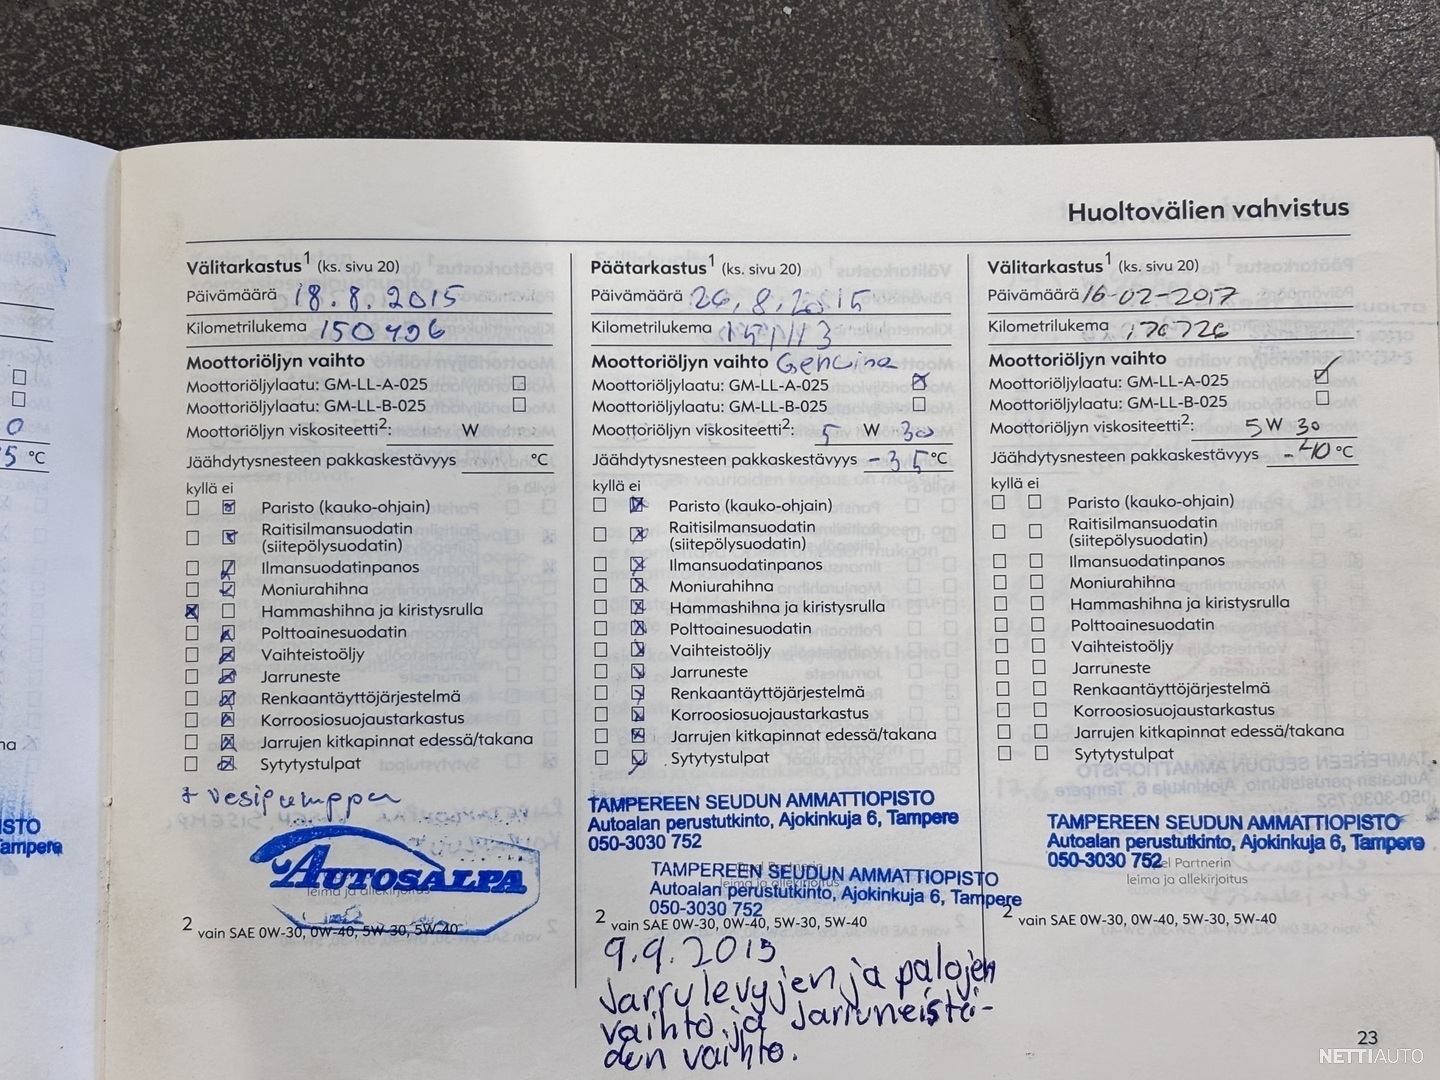 Huoltovälien vahvistus
Välitarkastus1 (ks. sivu 20)
Päivämäärä 18.8.2015
Kilometrilukema 150496
Moottoriöljyn vaihto
Moottoriöljylaatu: GM-LL-A-025
Moottoriöljylaatu: GM-LL-B-025
Moottoriöljyn viskositeetti2: W
Jäähdytysnesteen pakkaskestävyys °C
kyllä ei
Paristo (kauko-ohjain)
Raitisilmansuodatin
(siitepölysuodatin)
Ilmansuodatinpanos
Moniurahihna
Hammashihna ja kiristysrulla
Polttoainesuodatin
Vaihteistoöljy
Jarruneste
Renkaantäyttöjärjestelmä
Korroosiosuojaustarkastus
Jarrujen kitkapinnat edessä/takana
Sytytystulpat
+ vesipumppu
AUTOSALPA
leima ja allekirjoitus
2 vain SAE 0W-30, 0W-40, 5W-30, 5W-40
Päätarkastus1 (ks. sivu 20)
Päivämäärä 26.8.2015
Kilometrilukema
Moottoriöljyn vaihto
Moottoriöljylaatu: GM-LL-A-025
Moottoriöljylaatu: GM-LL-B-025
Moottoriöljyn viskositeetti2: 5 W 30
Jäähdytysnesteen pakkaskestävyys -35 °C
kyllä ei
Paristo (kauko-ohjain)
Raitisilmansuodatin
(siitepölysuodatin)
Ilmansuodatinpanos
Moniurahihna
Hammashihna ja kiristysrulla
Polttoainesuodatin
Vaihteistoöljy
Jarruneste
Renkaantäyttöjärjestelmä
Korroosiosuojaustarkastus
Jarrujen kitkapinnat edessä/takana
Sytytystulpat
TAMPEREEN SEUDUN AMMATTIOPISTO
Autoalan perustutkinto, Ajokinkuja 6, Tampere
050-3030 752
TAMPEREEN SEUDUN AMMATTIOPISTO
Autoalan perustutkinto, Ajokinkuja 6, Tampere
050-3030 752
2 vain SAE 0W-30, 0W-40, 5W-30, 5W-40
9.9.2015
Jarrulevyjen ja palojen
vaihto ja Jarruneistei-
den vaihto.
Välitarkastus1 (ks. sivu 20)
Päivämäärä 16-02-2017
Kilometrilukema 170726
Moottoriöljyn vaihto
Moottoriöljylaatu: GM-LL-A-025
Moottoriöljylaatu: GM-LL-B-025
Moottoriöljyn viskositeetti2: 5 W 30
Jäähdytysnesteen pakkaskestävyys -40 °C
kyllä ei
Paristo (kauko-ohjain)
Raitisilmansuodatin
(siitepölysuodatin)
Ilmansuodatinpanos
Moniurahihna
Hammashihna ja kiristysrulla
Polttoainesuodatin
Vaihteistoöljy
Jarruneste
Renkaantäyttöjärjestelmä
Korroosiosuojaustarkastus
Jarrujen kitkapinnat edessä/takana
Sytytystulpat
TAMPEREEN SEUDUN AMMATTIOPISTO
Autoalan perustutkinto, Ajokinkuja 6, Tampere
050-3030 752
el Partnerin
leima ja allekirjoitus
2 vain SAE 0W-30, 0W-40, 5W-30, 5W-40
23
NETTIAUTO